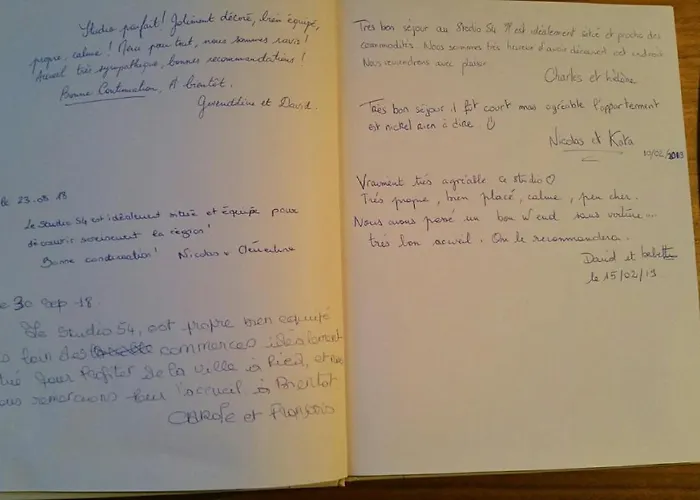 Studio parfait ! Joliment décoré, bien équipé,
propre, calme ! Merci pour tout, nous sommes ravis !
Accueil très sympathique, bonnes recommandations !
Bonne Continuation, A bientôt.
Gwenddine et David.
le 23.09.18
Le Studio 54 est idéalement situé et équipé pour
découvrir sereinement la région !
Bonne continuation ! Nicolas & Clémentine
30 Sep -18.
Le Studio 54, est propre bien equipé
loin des commerces idéalement
pour Profiter de la ville à Pied, et
remercions pour l'accueil à Bientot
CAROLE et François
Très bon séjour au Studio 54 !!! est idéalement situé et proche des
commodités. Nous sommes très heureux d'avoir découvert cet endroit
Nous reviendrons avec plaisir
Charles et hélène
Très bon séjour il fût court mais agréable l'appartement
est nickel rien à dire.
Nicolas et Kata
10/02/2019
Vraiment très agréable ce studio ♡
Très propre, bien placé, calme, peu cher.
Nous avons passé un bon w'end sans voiture...
très bon accueil. On le recommandera.
David et babette
le 15/02/19